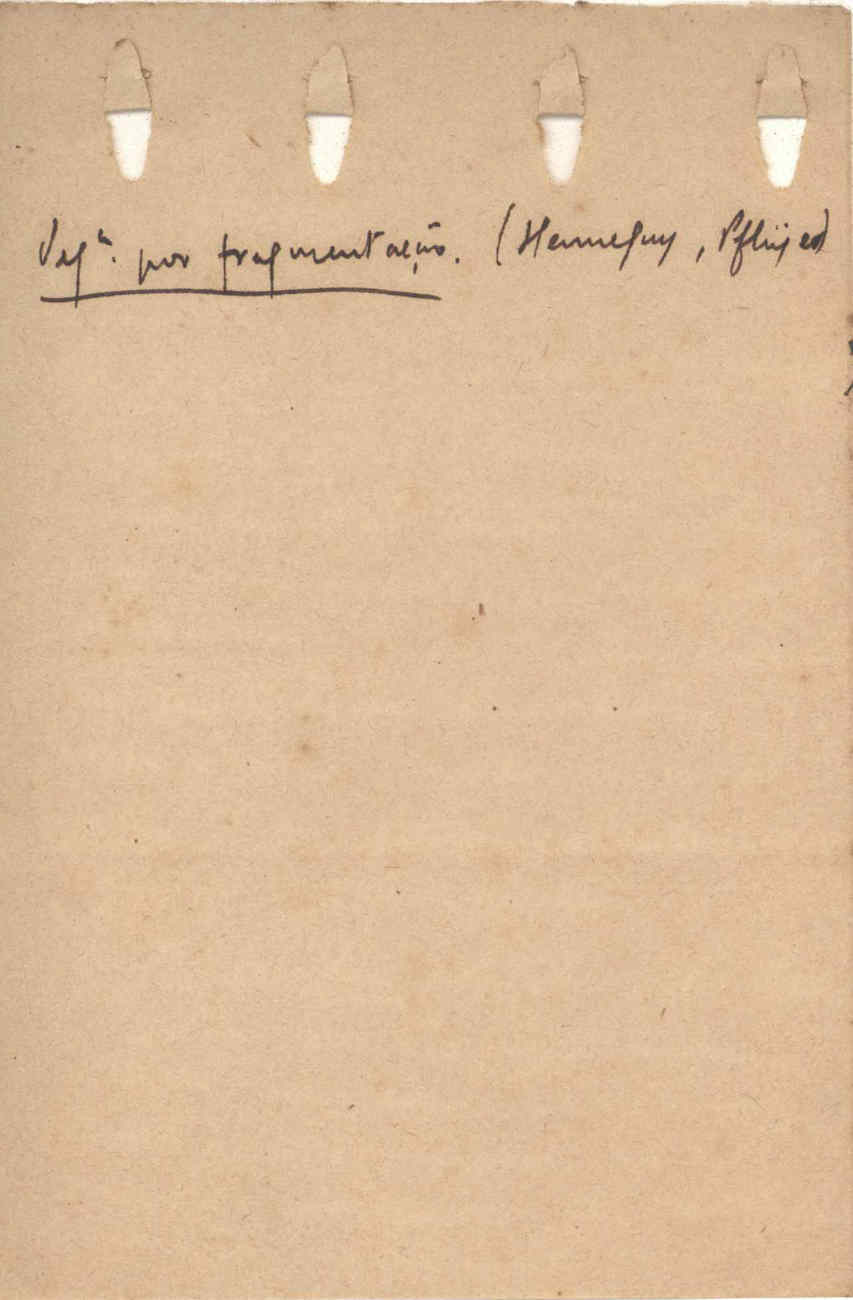 Deg.ª por fragmentação. (Henneguy, Pflüger)